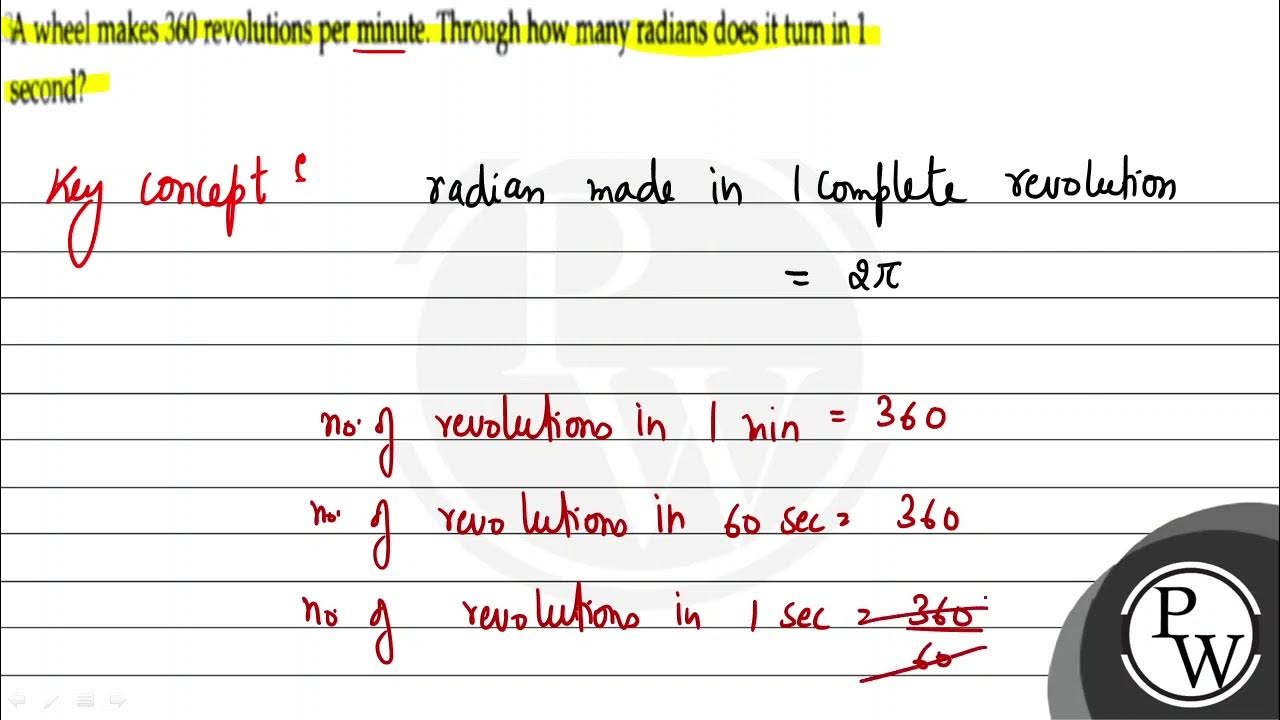 A wheel makes 360 revolutions per minute. Through how many radians does it turn in 1
second?
Key concept :
radian made in 1 complete revolution
= 2π
no. of revolutions in 1 min = 360
no. of revolutions in 60 sec = 360
no. of revolutions in 1 sec = 360
60
PW
PW